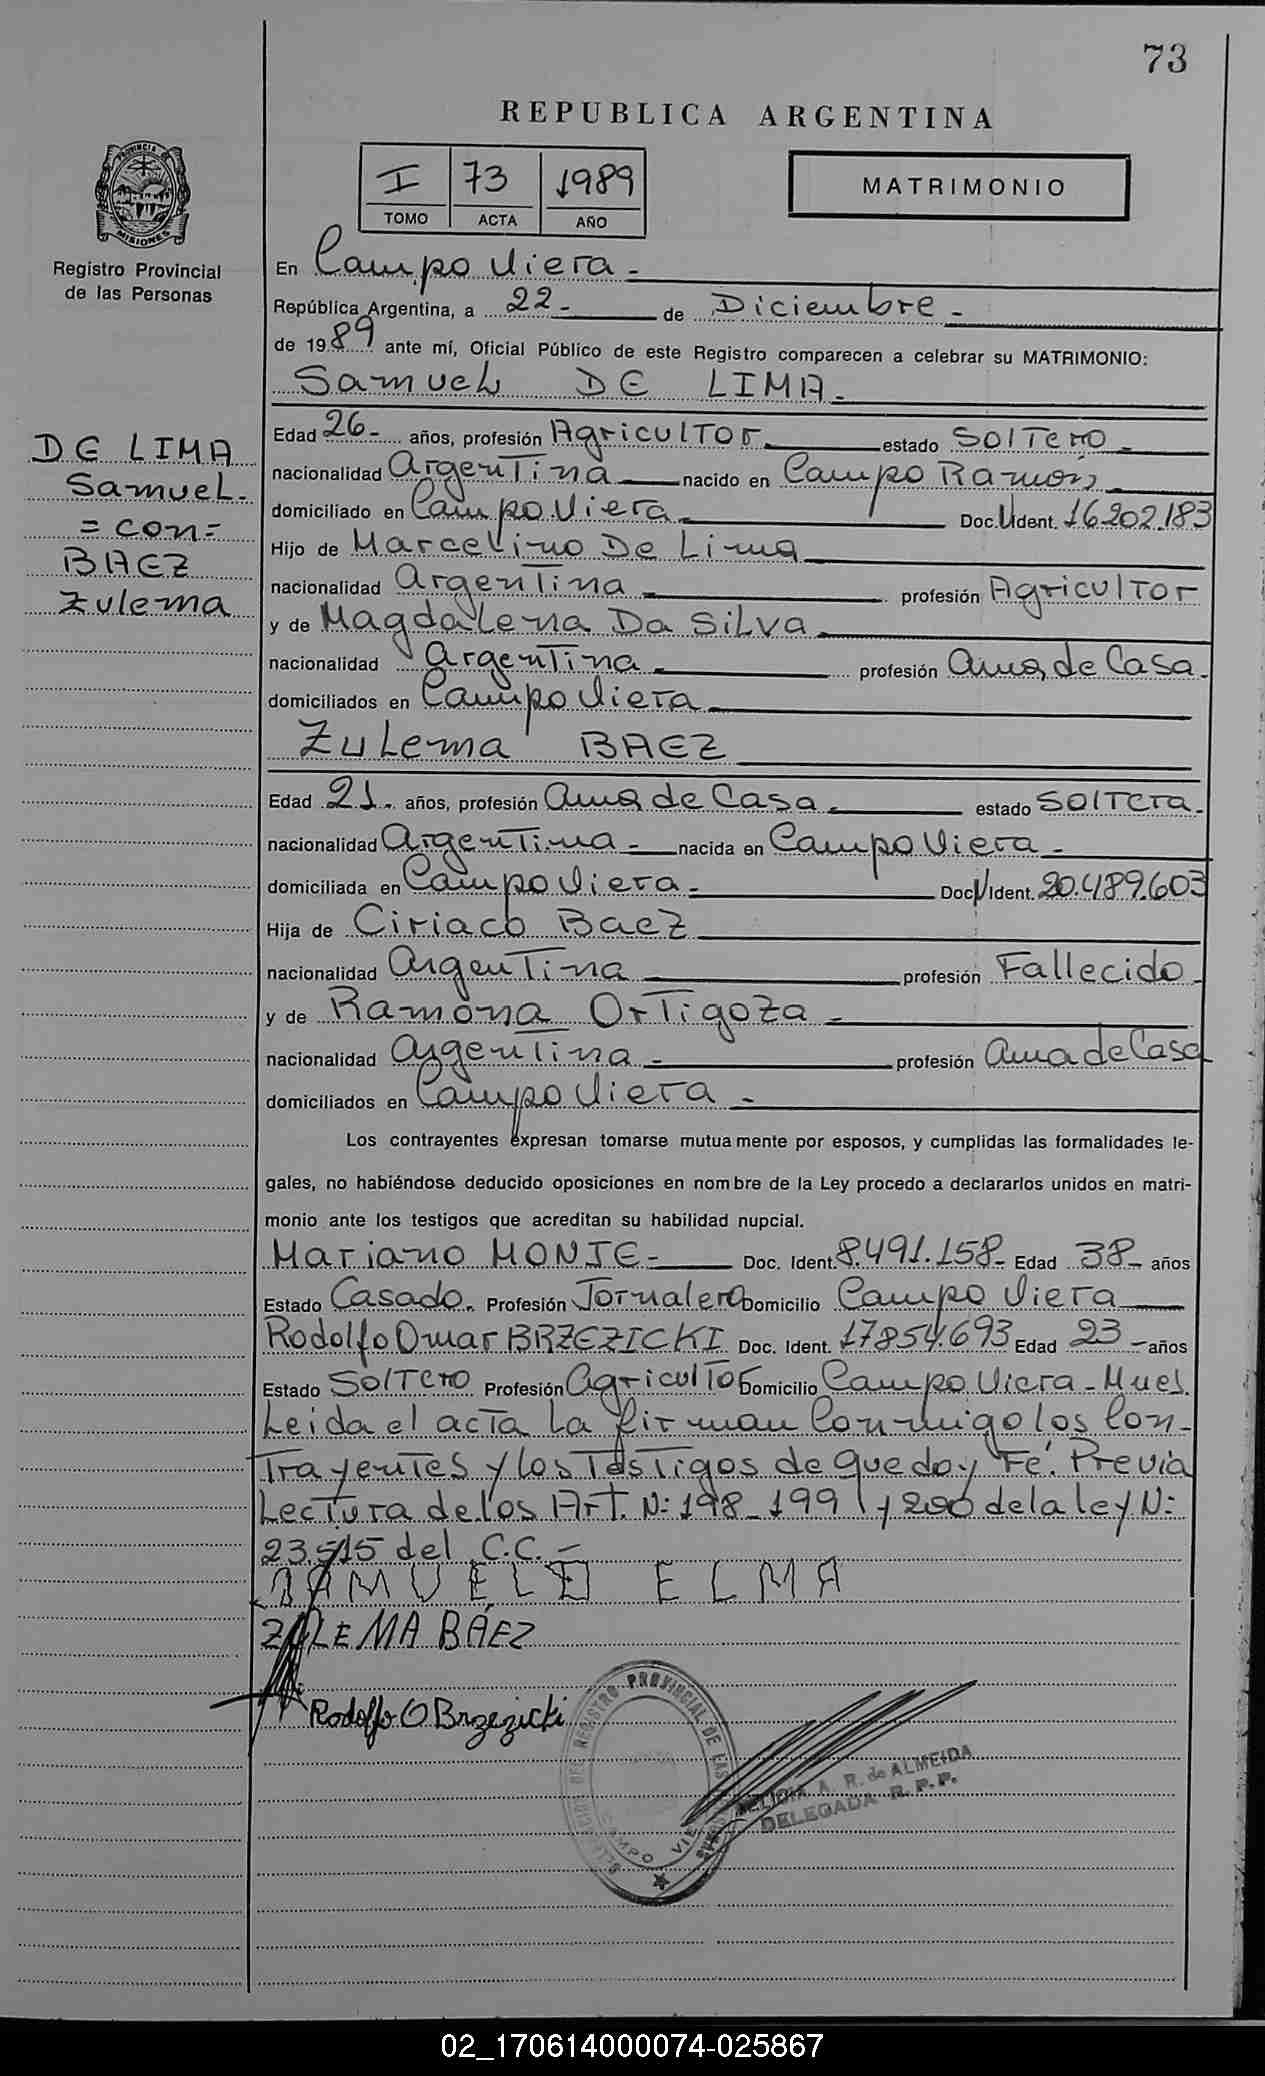 73
REPUBLICA ARGENTINA
PROVINCIA DE MISIONES
Registro Provincial
de las Personas
I 73 1989
TOMO ACTA AÑO
MATRIMONIO
En Campo Viera -
República Argentina, a 22- de Diciembre -
de 1989 ante mí, Oficial Público de este Registro comparecen a celebrar su MATRIMONIO:
Samuel DE LIMA -
DE LIMA
Samuel -
= con =
BAEZ
Zulema
Edad 26- años, profesión Agricultor estado Soltero -
nacionalidad Argentina nacido en Campo Ramón
domiciliado en Campo Viera - Doc. U Ident. 16202.183
Hijo de Marcelino De Lima
nacionalidad Argentina profesión Agricultor
y de Magdalena Da Silva
nacionalidad Argentina - profesión Ama de Casa -
domiciliados en Campo Viera
Zulema BAEZ
Edad 21- años, profesión Ama de Casa - estado Soltera -
nacionalidad Argentina - nacida en Campo Viera -
domiciliada en Campo Viera - Doc. U Ident. 20.489.603
Hija de Ciriaco Baez
nacionalidad Argentina profesión Fallecido
y de Ramona Ortigoza -
nacionalidad Argentina - profesión Ama de Casa
domiciliados en Campo Viera -
Los contrayentes expresan tomarse mutuamente por esposos, y cumplidas las formalidades le-
gales, no habiéndose deducido oposiciones en nombre de la Ley procedo a declararlos unidos en matri-
monio ante los testigos que acreditan su habilidad nupcial.
Mariano MONJE - Doc. Ident. 8.491.158- Edad 38- años
Estado Casado. Profesión Jornalero Domicilio Campo Viera
Rodolfo Omar BRZEZICKI Doc. Ident. 17854.693 Edad 23- años
Estado Soltero Profesión Agricultor Domicilio Campo Viera -
Leida el acta La firman Conmigo los Con-
trayentes y los Testigos de que doy Fé. Previa
Lectura de los Art. N: 198-199 y 200 de la ley N:
23.515 del C.C. -
SAMUEL D E LMA
ZULEMA BÁEZ
Rodolfo O Brzezicki
REGISTRO PROVINCIAL DE LAS
CAMPO VIE
ALICIA A. R. de ALMEIDA
DELEGADA R.P.P.
02_170614000074-025867